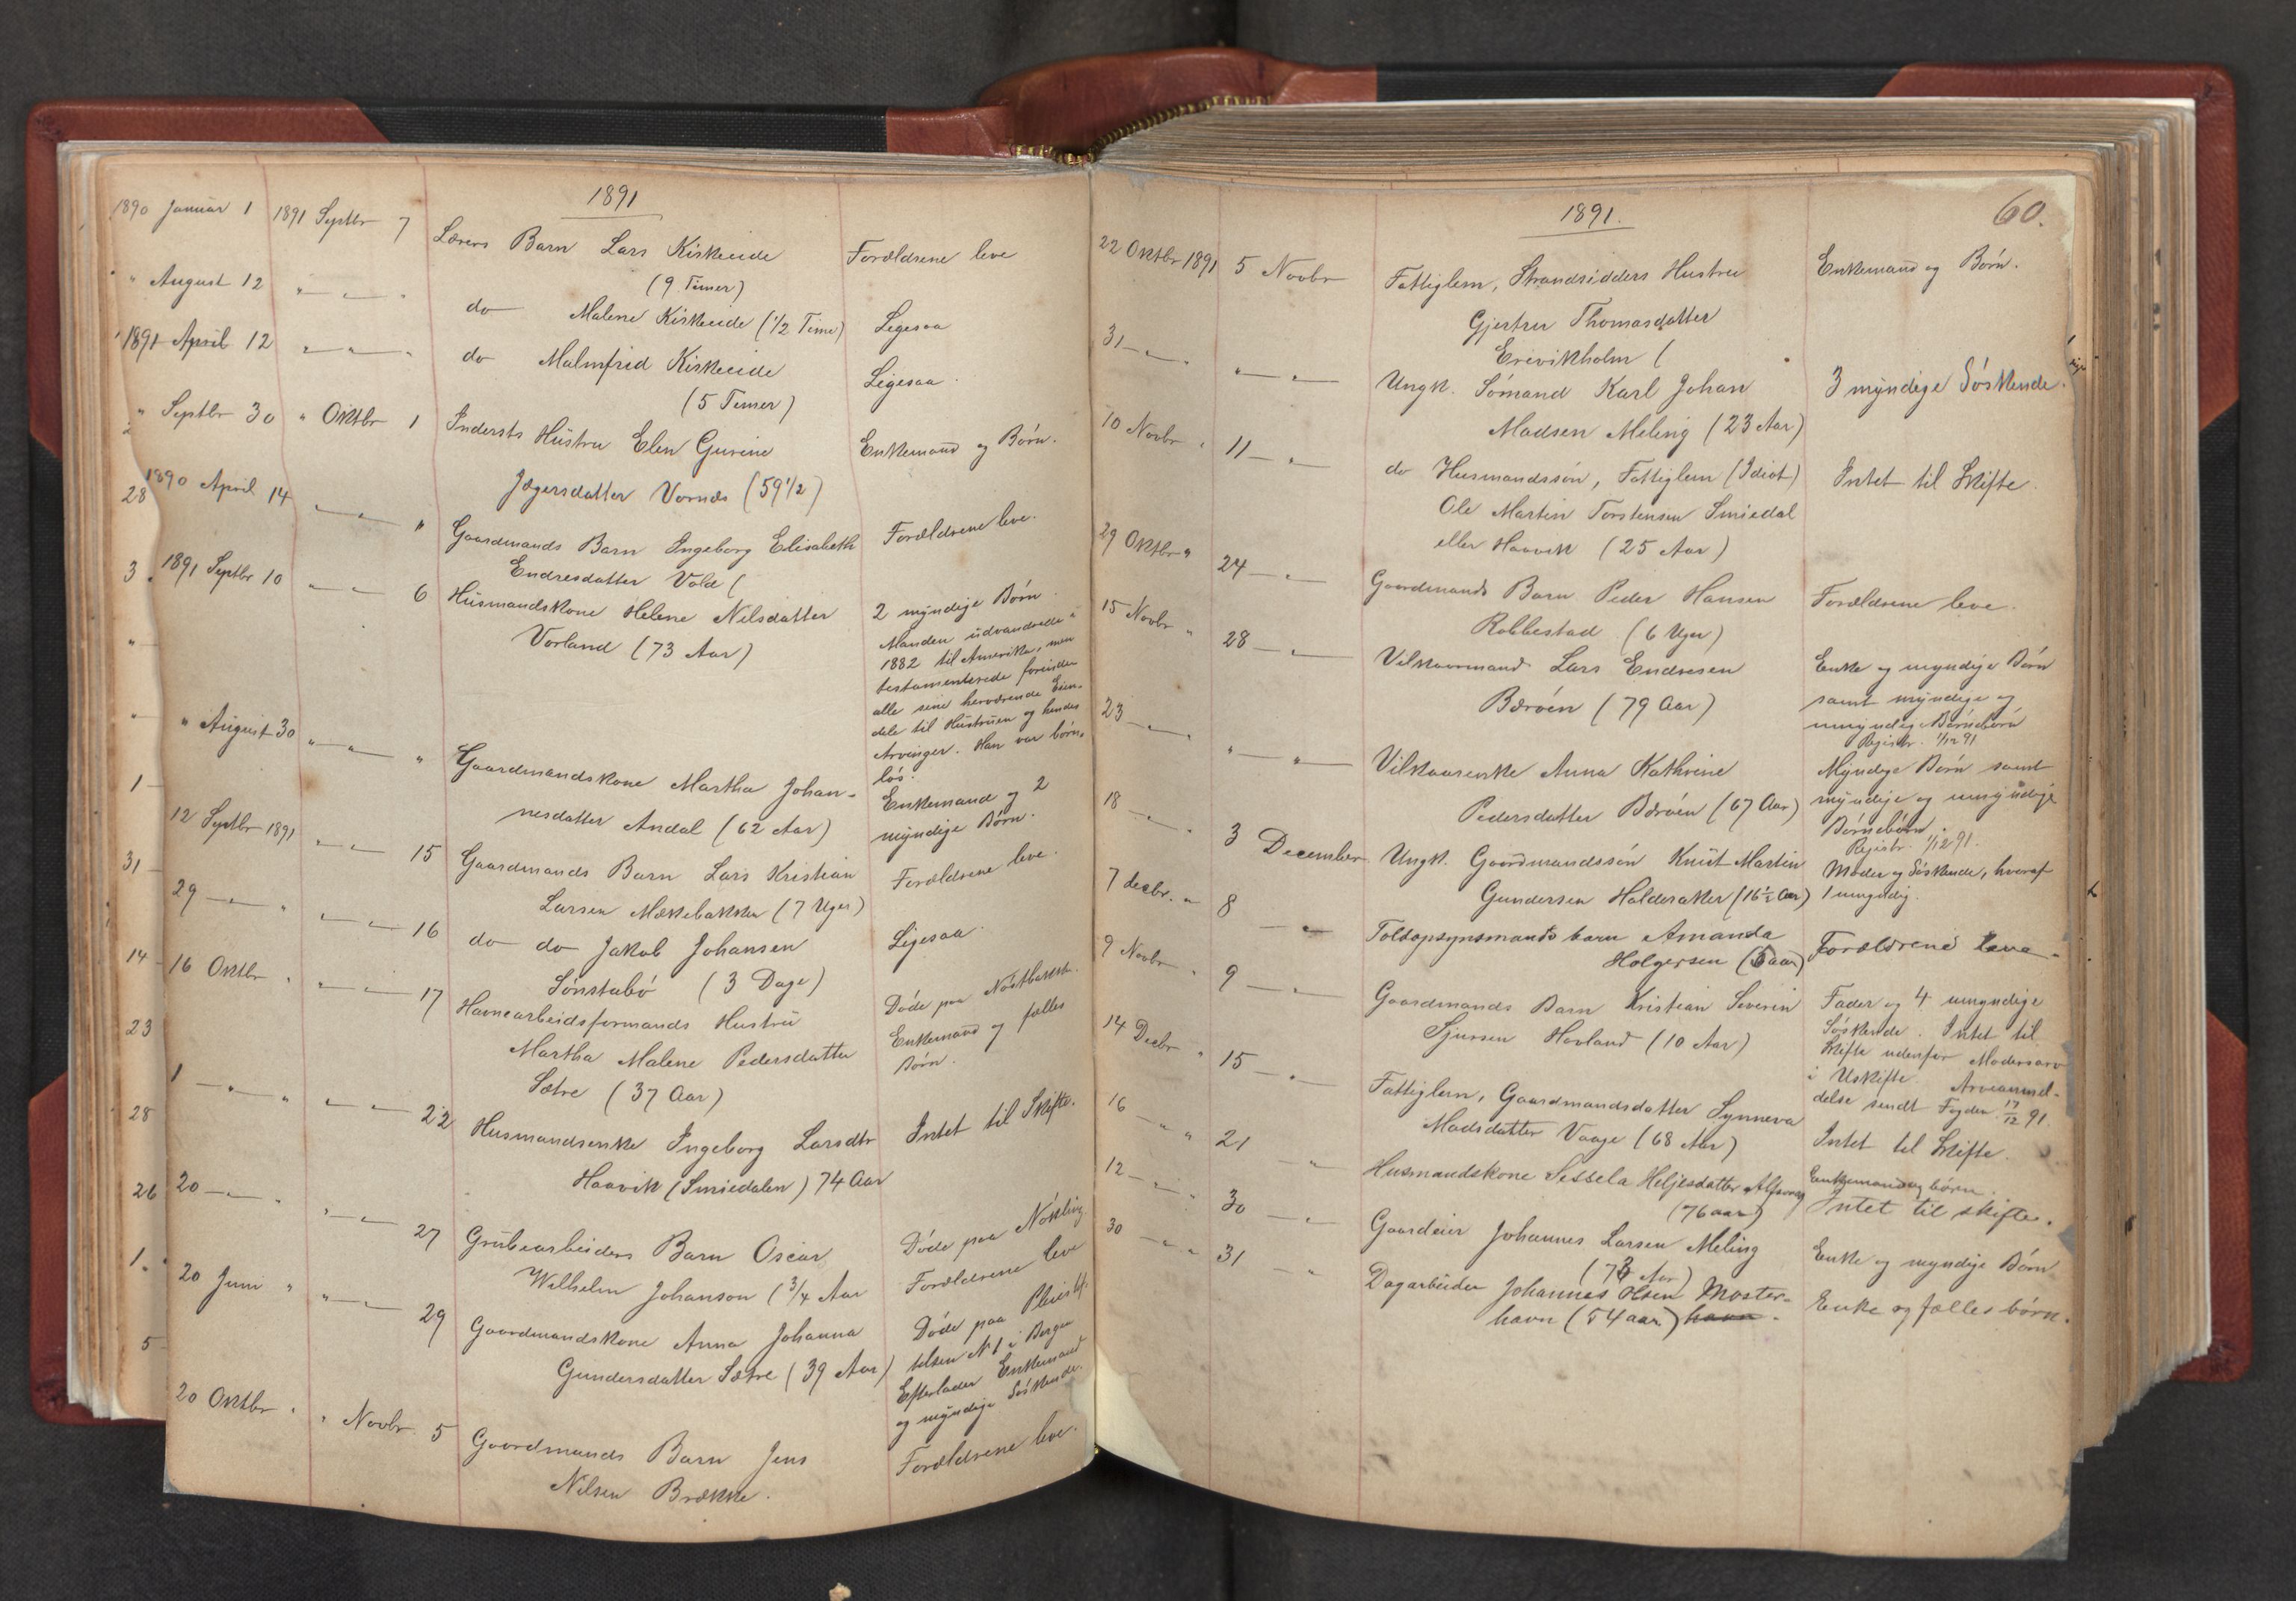 1891
1890 Januar 1 1891 Septbr 7 Lærers Barn Lars Kirkeeide Forældrene leve
(9 Timer)
" August 12 " — " — " do Malene Kirkeeide (1/2 Time) Ligesaa
1891 April 12 " — " — " do Malmfrid Kirkeeide Ligesaa.
(5 Timer)
" Septbr 30 " Oktbr 1 Indersts Hustru Elen Gurine Enkemand og Børn.
Jægersdatter Vornæs (59 1/2)
1890 April 14 " — " — " Gaardmands Barn Ingeborg Elisabeth Forældrene leve.
Endresdatter Vold (
1891 Septbr 10 " — " — 6 Husmandskone Helene Nilsdatter 2 myndige Børn.
Vorland (73 Aar) Manden udvandrede i
1882 til Amerika, men
testamenterede forinden
alle sine herværende Eien-
dele til Hustruen og hendes
Arvinger. Han var børn-
løs.
" August 30 " — " — " Gaardmandskone Martha Johan- Enkemand og 2
nesdatter Andal (62 Aar) myndige Børn.
12 Septbr 1891 " — " — 15 Gaardmands Barn Lars Kristian Forældrene leve.
Larsen Mækebakken (7 Uger)
29 — " — " " — " — 16 do do Jakob Johansen Ligesaa.
Sønstabø (3 Dage)
16 Oktbr " " — " — 17 Havnearbeidsformands Hustru Døde paa
Martha Malene Pedersdatter Enkemand og fælles
Sætre (37 Aar) Børn.
1 — " — " " — " — 22 Husmandsenke Ingeborg Larsdtr Intet til Skifte.
Haavik (Smiedalen) 74 Aar
20 — " — " " — " — 27 Grubearbeiders Barn Oscar Døde paa
Wilhelm Johanson (3/4 Aar Forældrene leve
20 Juni " " — " — 29 Gaardmandskone Anna Johanna Døde paa Pleiestif-
Gundersdatter Sætre (39 Aar) telsen N 1 i Bergen
Efterlader Enkemand
og myndige Søskende.
20 Oktbr " " Novbr. 5 Gaardmands Barn Jens Forældrene leve.
Nilsen Brække.
28
3
1
31
14
23
28
26
1
5
60.
1891.
22 Oktbr 1891 5 Novbr Fattiglem, Strandsidders Hustru Enkemand og Børn.
Gjertru Thomasdatter
Erevikholm (
31 — " — " " — " — Ungk. Sømand Karl Johan 3 myndige Søskende.
Madsen Meling (23 Aar)
10 Novbr " 11 — " — do Husmandssøn, Fattiglem (Idiot) Intet til Skifte.
Ole Martin Torstensen Smiedal
eller Haavik (25 Aar)
29 Oktbr " 24 — " — Gaardmands Barn Peder Hansen Forældrene leve.
Robbestad (6 Uger)
15 Novbr " 28 — " — Vilkaarmand Lars Endresen Enke og myndige Børn
Børøen (79 Aar) samt myndige og
umyndige Børnebørn
Registr. 1/12 91
23 — " — " " — " — Vilkaarenke Anna Kathrine Myndige Børn samt
Pedersdatter Børøen (67 Aar) myndige og umyndige
Børnebørn.
Registr. 1/12 91.
18 — " — " 3 December Ungk. Gaardmandssøn Knut Martin Moder og Søskende, hvoraf
Gundersen Halderaker (16 1/2 Aar) 1 umyndig.
7 decbr. " 8 — " — Toldopsynsmands barn Amanda Forældrene leve.
Holgersen (5 aar)
9 Novbr " 9 — " — Gaardmands Barn Kristian Severin Fader og 4 umyndige
Sjursen Hovland (10 Aar) Søskende. Intet til
Skifte udenfor Modersarv
i Uskifte. Arveanmel-
delse sendt Fogden 17/12 91.
14 Decbr " 15 — " — Fattiglem, Gaardmandsdatter Synneva Intet til Skifte.
Madsdatter Vaage (68 Aar)
16 — " — " 21 — " — Husmandskone Sessela Heljesdatter Enkemand og børn.
(76 aar) Intet til skifte.
12 — " — " 30 — " — Gaardeier Johannes Larsen Meling Enke og myndige Børn
(73 Aar)
30 — " — " 31 — " — Dagarbeider Johannes Olsen Moster- Enke og fælles børn.
havn (54 aar) havn.